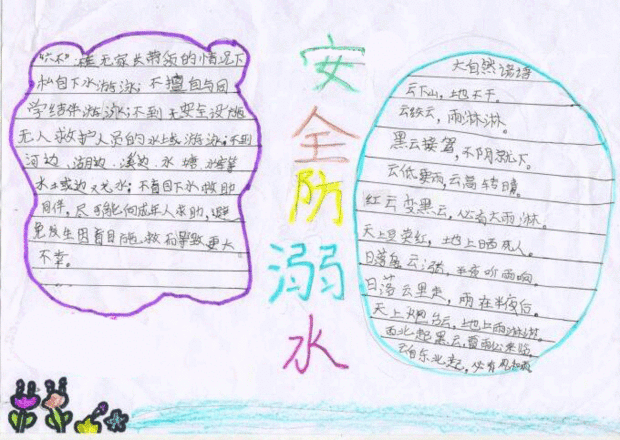 "六不"在无家长带领的情况下
私自下水游泳;不擅自与同
学结伴游泳;不到无安全设施
无人救护人员的水域游泳;不到
河边、湖边、溪边、水塘、水库等
不盲目下水救助
同伴,尽可能向成年人求助,避
免发生因盲目施救而导致更大
不幸。
安全防溺水
大自然谚语
云下山,地不干。
云绞云,雨淋淋。
黑云接驾,不阴就下。
云低要雨,云高转晴。
红云变黑云,必有大雨淋。
地上晒死人。
日落乌云涨,半夜听雨响。
日落云里走,雨在半夜后。
地上雨淋淋。
西北起黑云,
云自东北起,必有风和雨